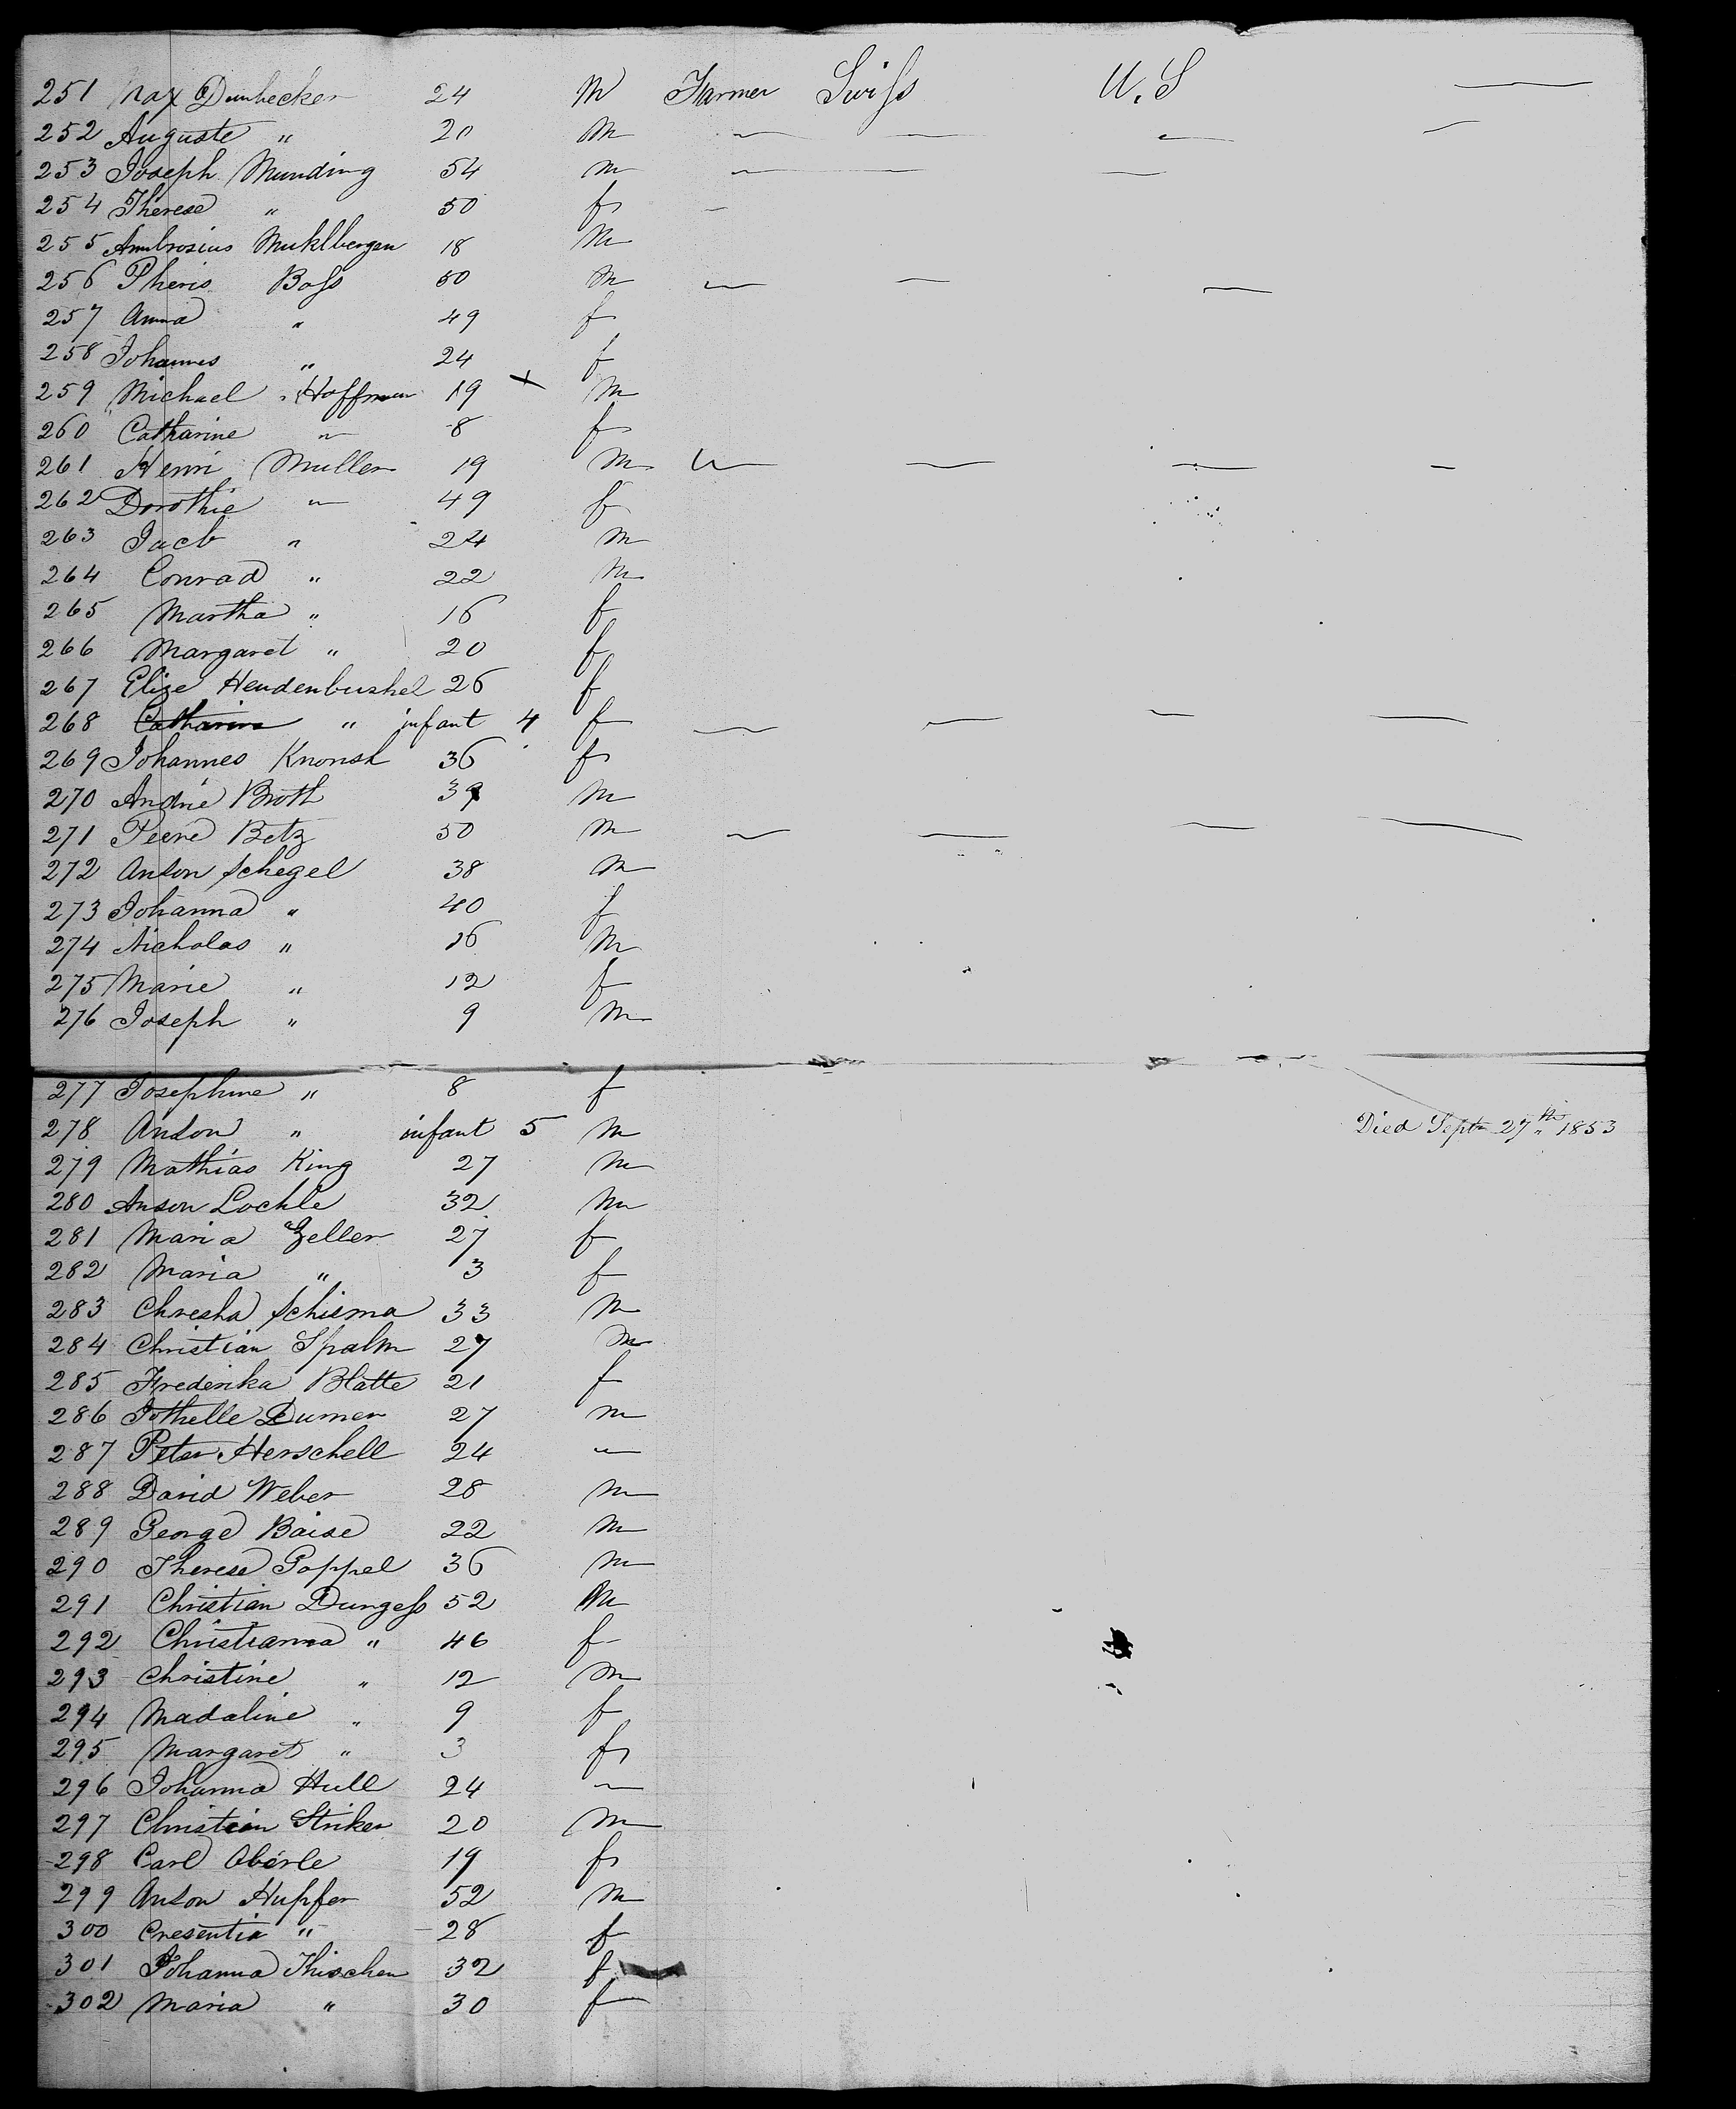 251 Max Dunbecker 24 M Farmer Swiss U.S —
252 Auguste " 20 m — — — —
253 Joseph Munding 54 m — — —
254 Therese " 50 f —
255 Ambrosius Muklbergen 18 m
256 Pheris Boss 50 m — — —
257 Anna " 49 f
258 Johannes " 24 f
259 Michael Hoffman 19 x m
260 Catharine " 8 f
261 Henri Muller 19 m — — — —
262 Dorothie " 49 f
263 Jacb " 24 m
264 Conrad " 22 m
265 Martha " 16 f
266 Margaret " 20 f
267 Elize Hendenbushel 26 f
268 Catharina " infant 4 f — — — —
269 Johannes Knonsh 36 f
270 Andrie Broth 39 m
271 Peere Betz 50 m — — — —
272 Anton Schegel 38 m
273 Johanna " 40 f
274 Nicholas " 16 m
275 Marie " 12 f
276 Joseph " 9 m
277 Josephine " 8 f
278 Anton " infant 5 m Died Sept 27th 1853
279 Mathias King 27 m
280 Anson Lochle 32 m
281 Maria Zeller 27 f
282 Maria " 3 f
283 Chresha Schisma 33 m
284 Christian Spalm 27 m
285 Frederika Blatte 21 f
286 Jothelle Dumer 27 m
287 Peter Herschell 24 —
288 David Weber 28 m
289 George Baise 22 m
290 Therese Poppel 36 m
291 Christian Dungess 52 m
292 Christianna " 46 f
293 Christine " 12 m
294 Madaline " 9 f
295 Margaret " 3 f
296 Johanna Hull 24 —
297 Christian Striker 20 m
298 Carl Oberle 19 f
299 Anton Hupfer 52 m
300 Cresentia " 28 f
301 Johanna Thischen 32 f
302 Maria " 30 f